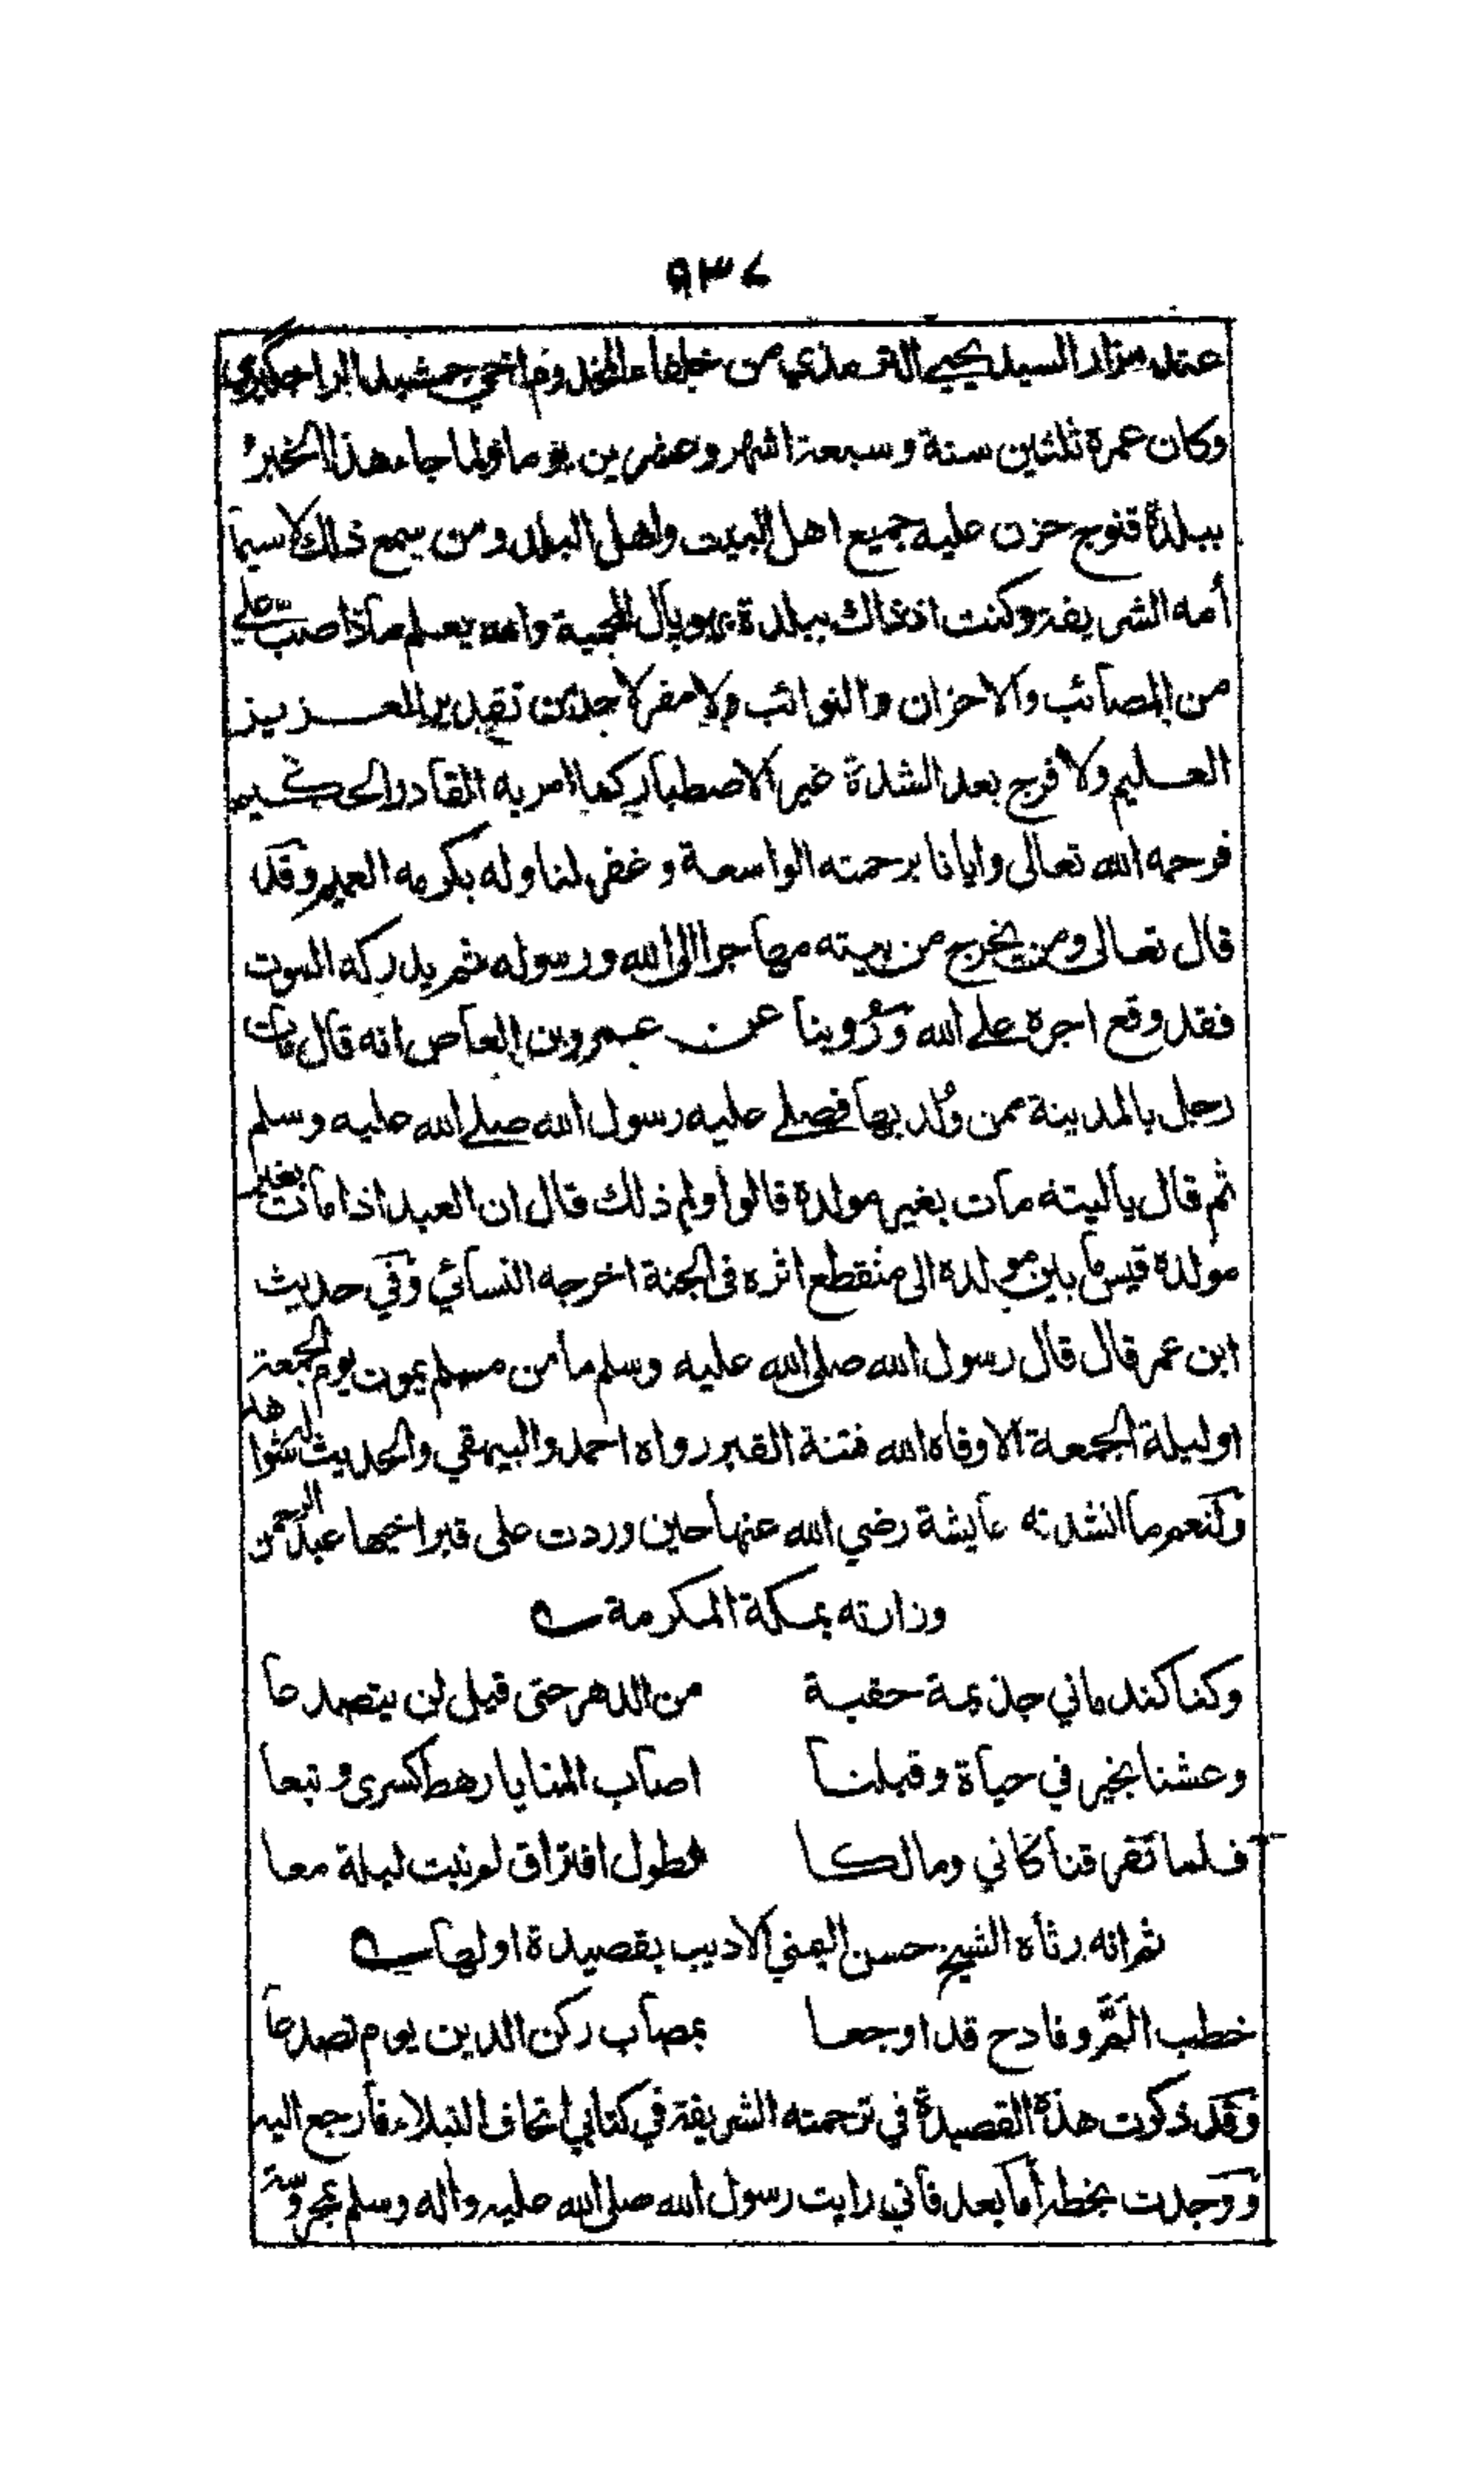 ٩٣٧
عند مزار السيد يحيى الترمذي من خلفاء المخدوم اخي جمشيد الراجگيري
وكان عمره ثلثين سنة وسبعة اشهر وعشرين يوما ولما جاء هذا الخبر
ببلدة قنوج حزن عليه جميع اهل البيت واهل البلد ومن سمع ذلك لا سيما
أمه الشريفة وكنت اذ ذاك ببلدة بهوپال المحمية والله يعلم ماذا صب علي
من المصائب والاحزان والنوائب ولا مفر لاحد من تقدير العزيز
العليم ولا فرج بعد الشدة غير الاصطبار كما امر به القادر الحكيم
فرحمه الله تعالى وايانا برحمته الواسعة وغفر لنا وله بكرمه العميم وقد
قال تعالى ومن يخرج من بيته مهاجرا الى الله ورسوله ثم يدركه الموت
فقد وقع اجره على الله وروينا عن عمرو بن العاص انه قال مات
رجل بالمدينة ممن ولد بها فصلى عليه رسول الله صلى الله عليه وسلم
ثم قال يا ليته مات بغير مولده قالوا ولم ذلك قال ان العبد اذا مات بغير
مولده قيس ما بين مولده الى منقطع اثره في الجنة اخرجه النسائي وفي حديث
ابن عمر قال قال رسول الله صلى الله عليه وسلم ما من مسلم يموت يوم الجمعة
او ليلة الجمعة الا وقاه الله فتنة القبر رواه احمد والبيهقي والحديث له شواهد
ولنعم ما انشدته عايشة رضي الله عنها حين وردت على قبر اخيها عبد الرحمن
وزارته بمكة المكرمة
وكنا كندماني جذيمة حقبة من الدهر حتى قيل لن يتصدعا
وعشنا بخير في حياة وقبلنا اصاب المنايا رهط كسرى وتبعا
فلما تفرقنا كاني ومالكا لطول افتراق لم نبت ليلة معا
ثم انه رثاه الشيخ حسن اليمني الاديب بقصيدة اولها
خطب الم وفادح قد اوجعا بمصاب ركن الدين يوم تصدعا
وقد ذكرت هذه القصيدة في ترجمته الشريفة في كتابي اتحاف النبلاء فارجع اليه
ووجدت بخطه أما بعد فاني رايت رسول الله صلى الله عليه وأله وسلم